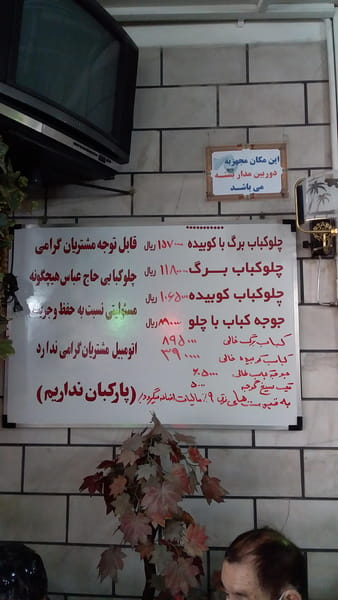 این مکان مجهز به
دوربین مدار بسته
می باشد
چلوکباب برگ با کوبیده ۱۵۷۰۰۰۰ ریال
چلوکباب برگ ۱۱۸۰۰۰۰ ریال
چلوکباب کوبیده ۱۰۶۵۰۰۰ ریال
جوجه کباب با چلو ریال
کباب برگ خالی ۸۹۵۰۰۰
کباب کوبیده خالی ۳۹۰۰۰۰
جوجه کباب خالی ۶۰۵۰۰۰
یک سیخ گوجه
به قیمت های فوق ۹٪ مالیات اضافه میگردد
قابل توجه مشتریان گرامی
چلوکبابی حاج عباس هیچگونه
مسئولیتی نسبت به حفظ و حراست
اتومبیل مشتریان گرامی ندارد
(پارکبان نداریم)